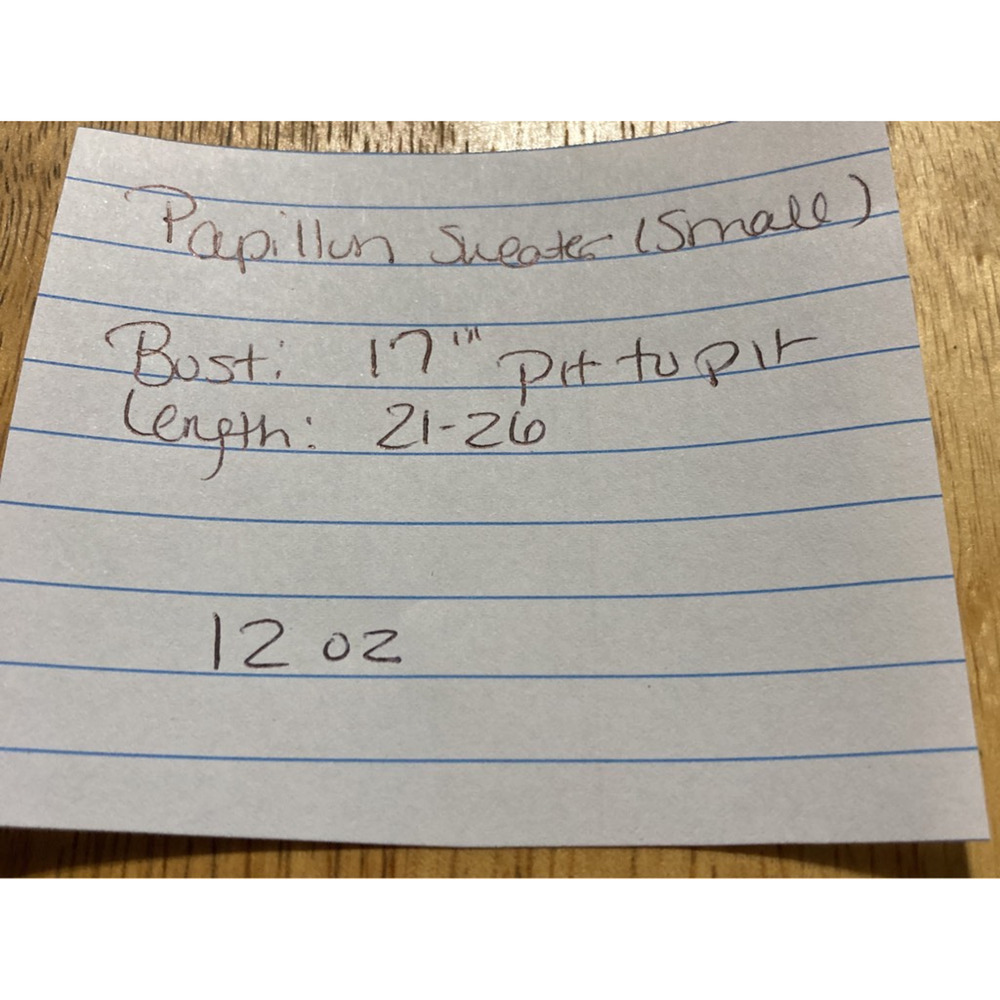 Papillon Sweater (Small)
Bust: 17 in pit to pit
Length: 21-26
12 oz